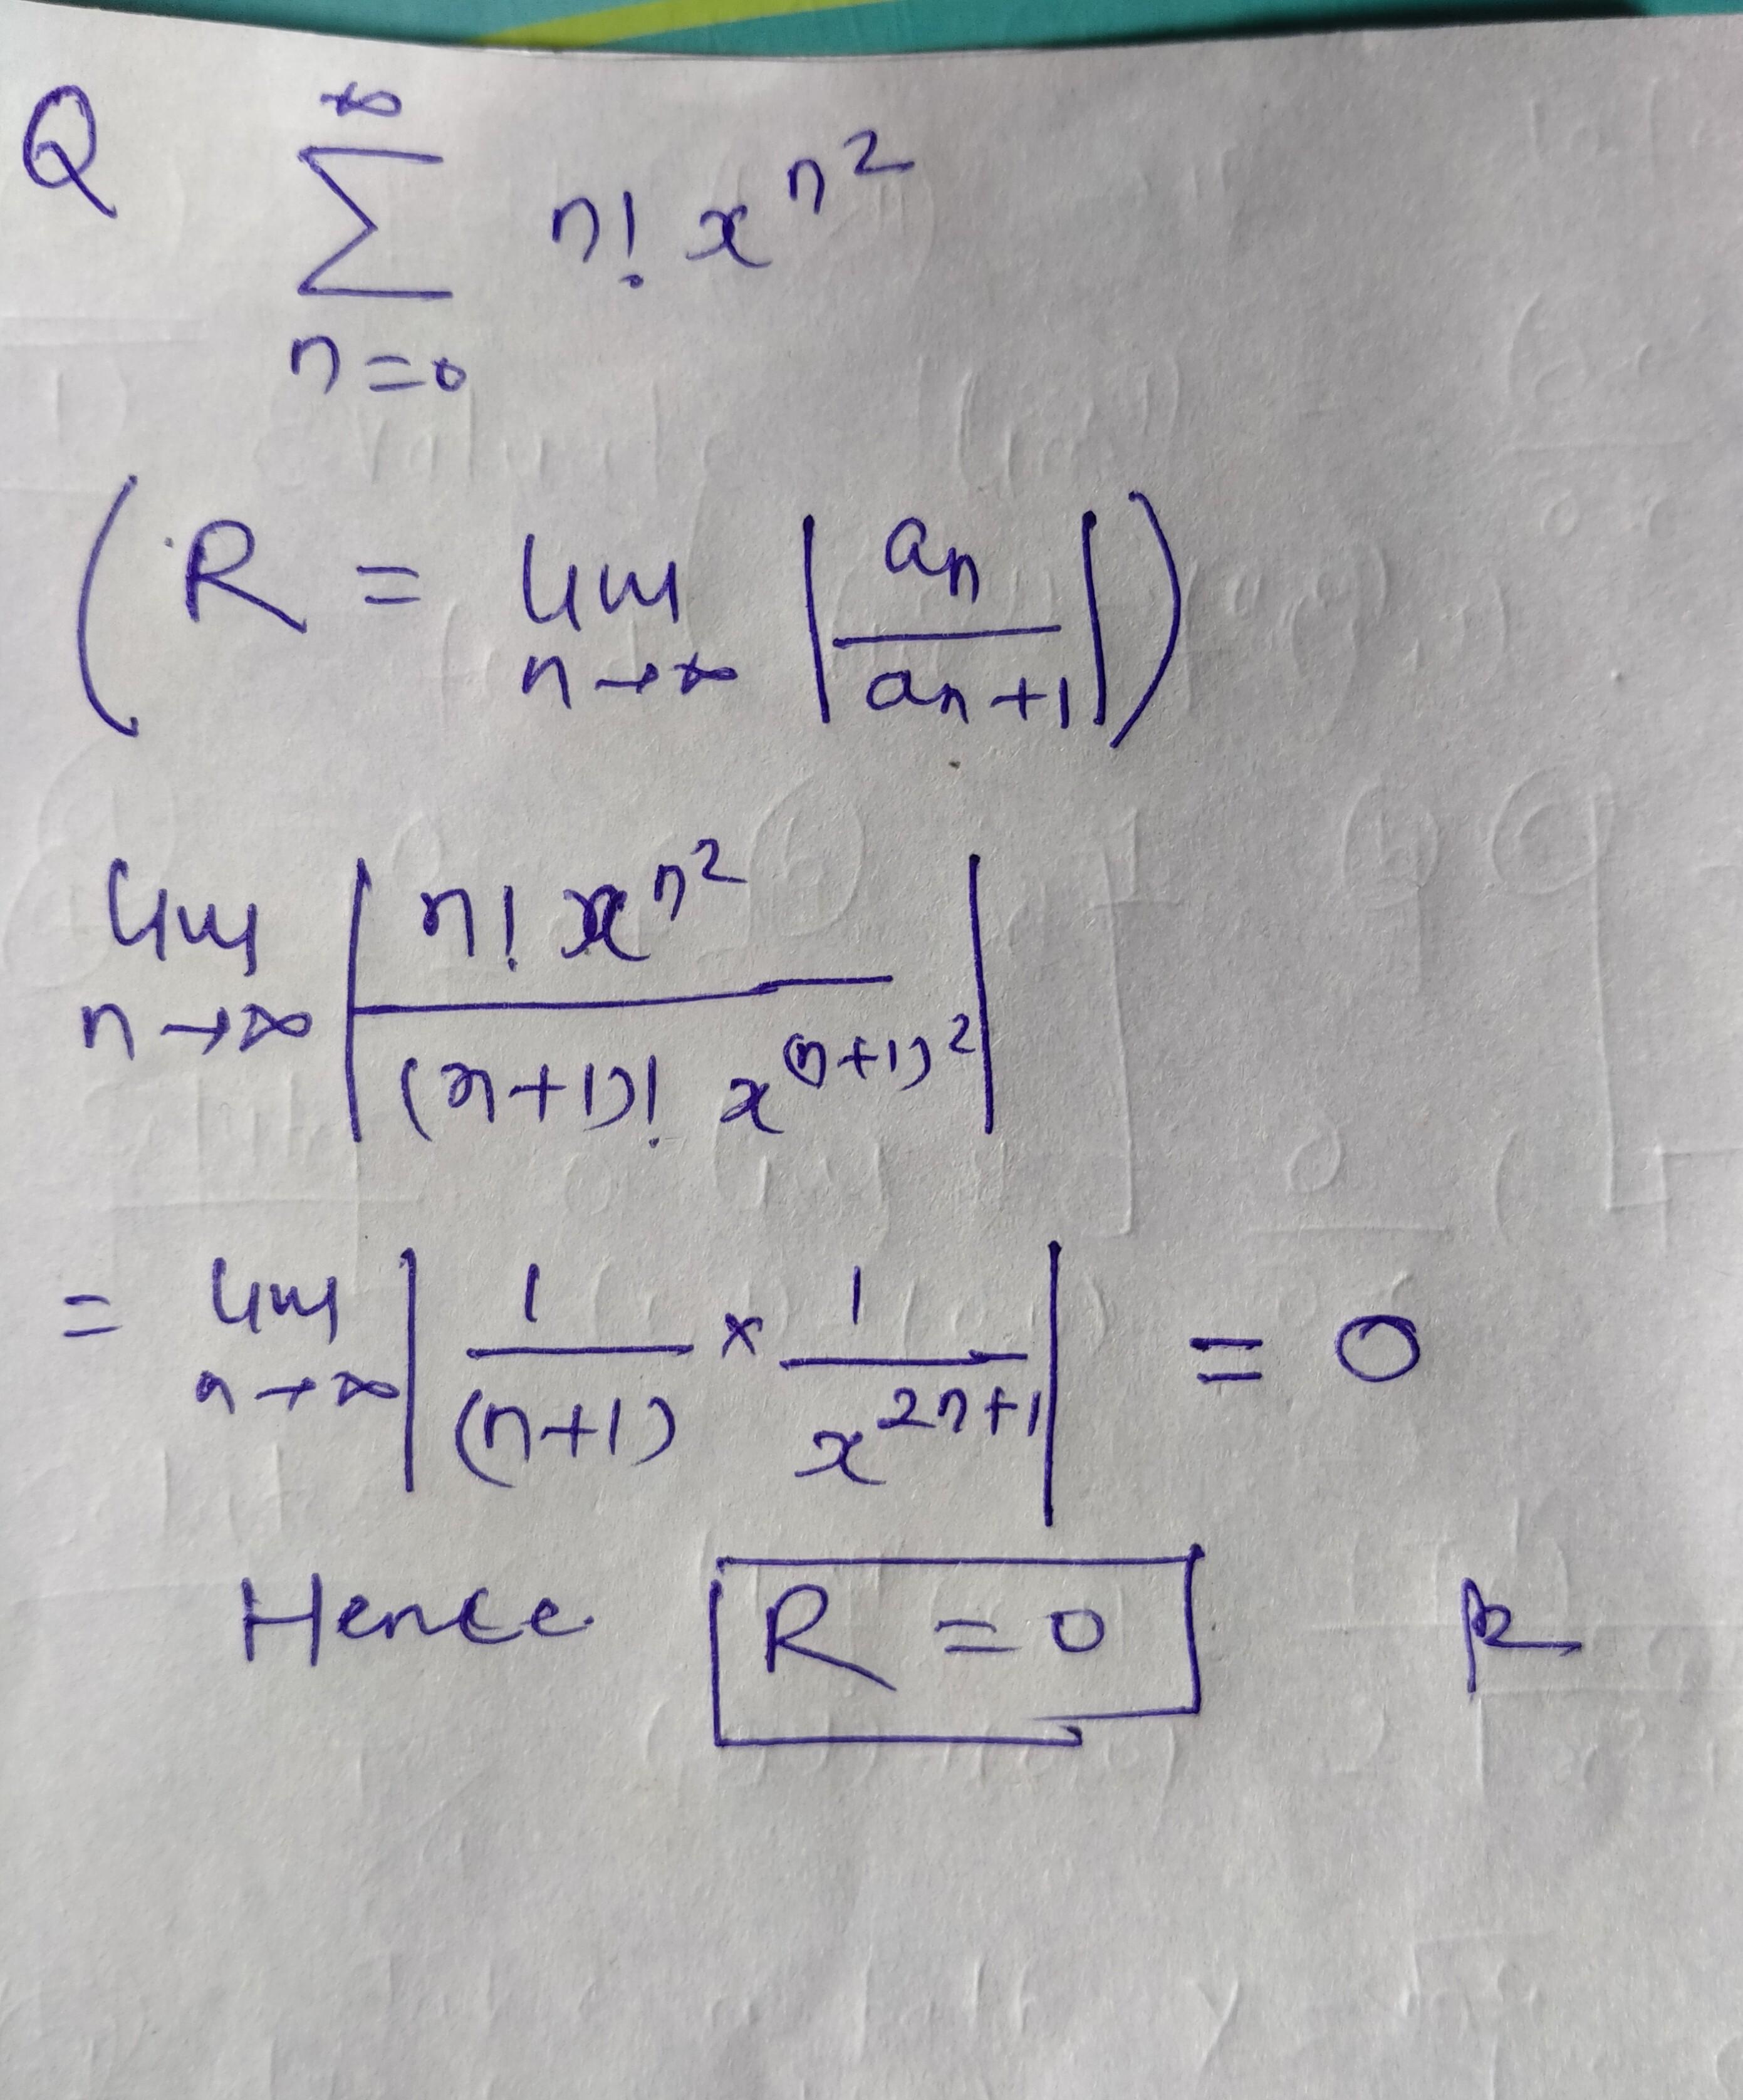 Q ∞
∑ n! x^{n^2}
n=0
( R = lim_{n→∞} | a_n / a_{n+1} | )
lim_{n→∞} | n! x^{n^2} / (n+1)! x^{(n+1)^2} |
= lim_{n→∞} | 1/(n+1) × 1/x^{2n+1} | = 0
Hence R = 0